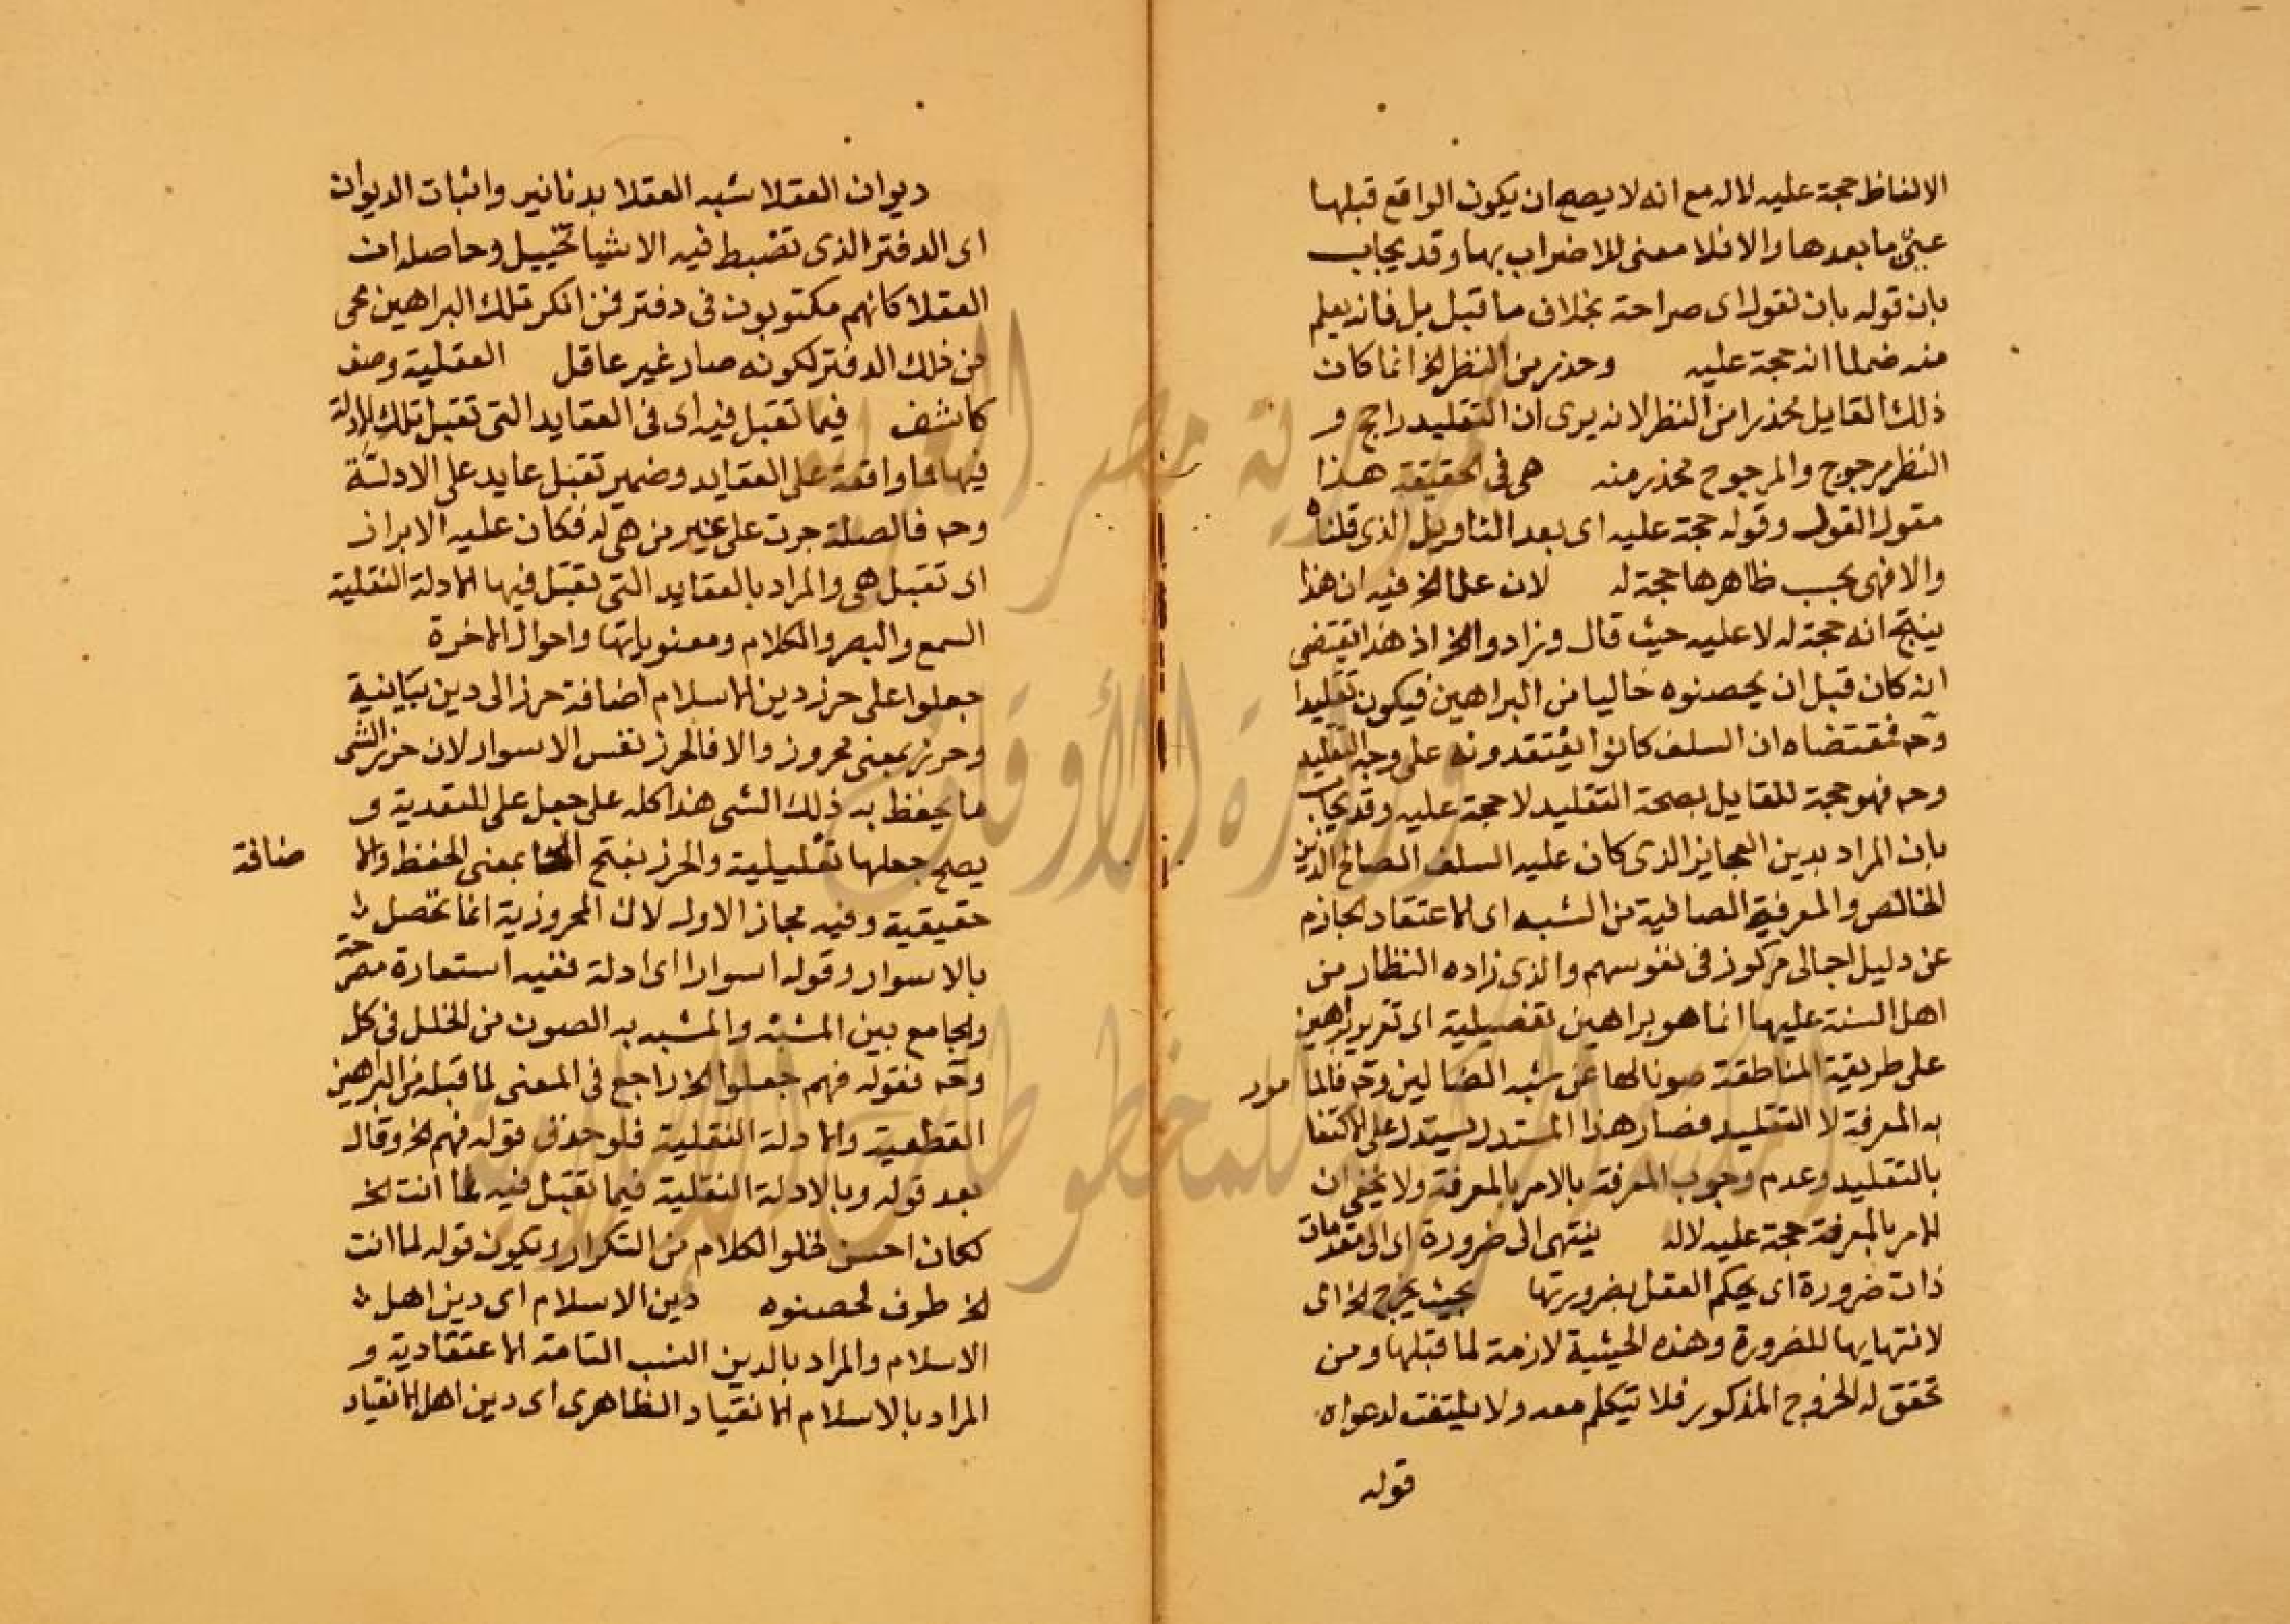 الالفاظ حجة عليه لاله مع انه لا يصح ان يكون الواقع قبلها
عين ما بعدها والا فلا معنى للاضراب بها وقد يجاب
بان قوله بان نقول اى صراحة بخلاف ما قبل بل فانه يعلم
منه ضمنا انه حجة عليه وحذر من النظر الخ انما كان
ذلك القايل محذرا من النظر لانه يرى ان التقليد راجح و
النظر مرجوح والمرجوح محذر منه هى فى الحقيقة هذا
مقول القول وقوله حجة عليه اى بعد التاويل الذى قلناه
والا فهى بحسب ظاهرها حجة له لان علما الخ فيه ان هذا
ينتج انه حجة له لا عليه حيث قال وزادوا الخ اذ هذا يقتضى
انه كان قبل ان يحصنوه خاليا من البراهين فيكون تقليدا
وحـ فمقتضاه ان السلف كانوا يعتقدونه على وجه التقليد
وحـ فهو حجة للقايل بصحة التقليد لا حجة عليه وقد يجاب
بان المراد بدين العجايز الذى كان عليه السلف الصالح الدين
الخالص والمعرفة الصافية من الشبه اى الاعتقاد الجازم
عن دليل اجمالى مركوز فى نفوسهم والذى زاده النظار من
اهل السنة عليها انما هو براهين تفصيلية اى تقرير براهين
على طريقة المناطقة صونا لها عن شبه الضالين وحـ فالما مور
به المعرفة لا التقليد فصار هذا المستدل يستدل على الاكتفا
بالتقليد وعدم وجوب المعرفة بالامر بالمعرفة ولا يخفى ان
الامر بالمعرفة حجة عليه لاله ينتهى الى ضرورة اى الى مقدمات
ذات ضرورة اى يحكم العقل بضرورتها بحيث يخرج الخ اى
لانتهايها للضرورة وهذه الحيثية لازمة لما قبلها ومن
تحقق له الخروج المذكور فلا تيكلم معه ولا يلتفت لدعواه
قوله
ديوان العقلا شبه العقلا بدنانير واثبات الديوان
اى الدفتر الذى تضبط فيه الاشيا تخييل وحاصله ان
العقلا كانهم مكتوبون فى دفتر فمن انكر تلك البراهين محى
من ذلك الدفتر لكونه صار غير عاقل العقلية وصف
كاشف فيما تقبل فيه اى فى العقايد التى تقبل تلك الادلة
فيها لما وافقه على العقايد وضمير تقبل عايد على الادلة
وحـ فالصلة جرت على غير من هى له فكان عليه الابراز
اى تقبل هى والمراد بالعقايد التى تقبل فيها الادلة النقلية
السمع والبصر والكلام ومعنوياتها واحوال الاخرة
جعلوا على حرز دين الاسلام اضافة حرز الى دين بيانية
وحرز بمعنى محروز والا فالحرز نفس الاسوار لان حرز الشى
ما يحفظ به ذلك الشى هذا كله على جعل على للتعدية و
يصح جعلها تعليلية والحرز بفتح الحا بمعنى الحفظ والا ضافة
حقيقية وفيه مجاز الاول لان المحروزية انما تحصل
بالاسوار وقوله اسوارا اى ادلة ففيه استعارة مصرحة
والجامع بين المشبه والمشبه به الصون من الخلل فى كل
وحـ فقوله فهم جعلوا الخ راجع فى المعنى لما قبله من البراهين
القطعية والادلة النقلية فلو حذف قوله فهم الخ وقال
بعد قوله وبالادلة النقلية فيما تقبل فيه لما انت الخ
لكان احسن لخلو الكلام من التكرار ويكون قوله لما انت
الخ ظرف لحصنوه دين الاسلام اى دين اهل
الاسلام والمراد بالدين النسب التامة الاعتقادية و
المراد بالاسلام الانقياد الظاهرى اى دين اهل الانقياد